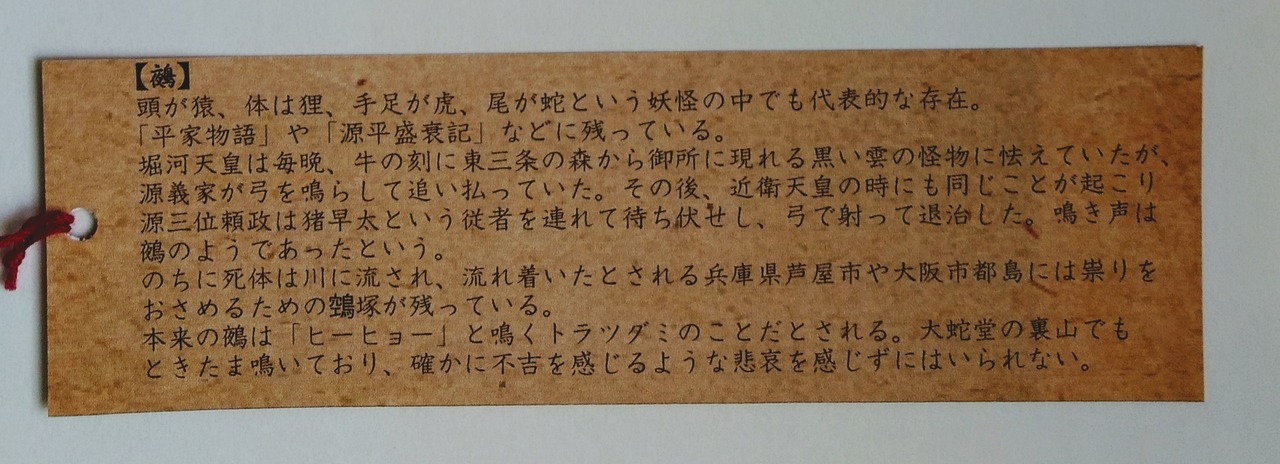 【鵺】
頭が猿、体は狸、手足が虎、尾が蛇という妖怪の中でも代表的な存在。
「平家物語」や「源平盛衰記」などに残っている。
堀河天皇は毎晩、牛の刻に東三条の森から御所に現れる黒い雲の怪物に怯えていたが、
源義家が弓を鳴らして追い払っていた。その後、近衛天皇の時にも同じことが起こり
源三位頼政は猪早太という従者を連れて待ち伏せし、弓で射って退治した。鳴き声は
鵺のようであったという。
のちに死体は川に流され、流れ着いたとされる兵庫県芦屋市や大阪市都島には祟りを
おさめるための鵼塚が残っている。
本来の鵺は「ヒーヒョー」と鳴くトラツグミのことだとされる。大蛇堂の裏山でも
ときたま鳴いており、確かに不吉を感じるような悲哀を感じずにはいられない。